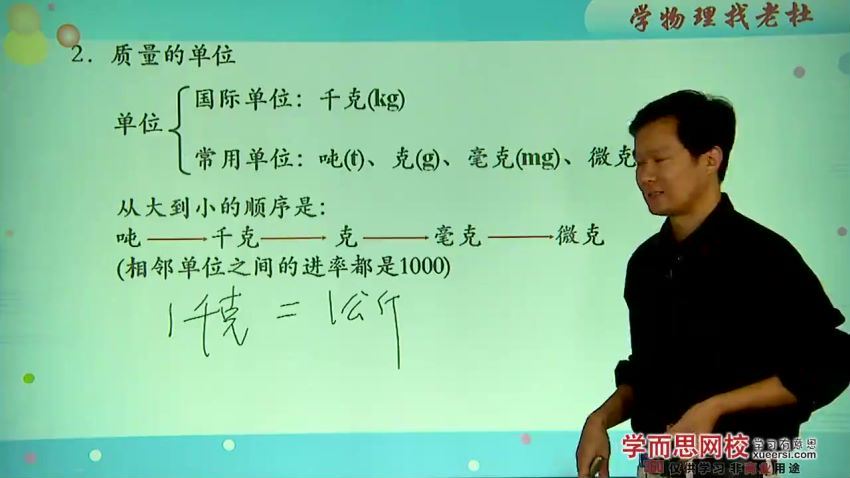 学物理找老杜
2. 质量的单位
单位
国际单位：千克(kg)
常用单位：吨(t)、克(g)、毫克(mg)、微克
从大到小的顺序是：
吨 千克 克 毫克 微克
(相邻单位之间的进率都是1000)
1千克 = 1公斤
学而思网校 学习有意思
xueersi.com
仅供学习 非商业用途